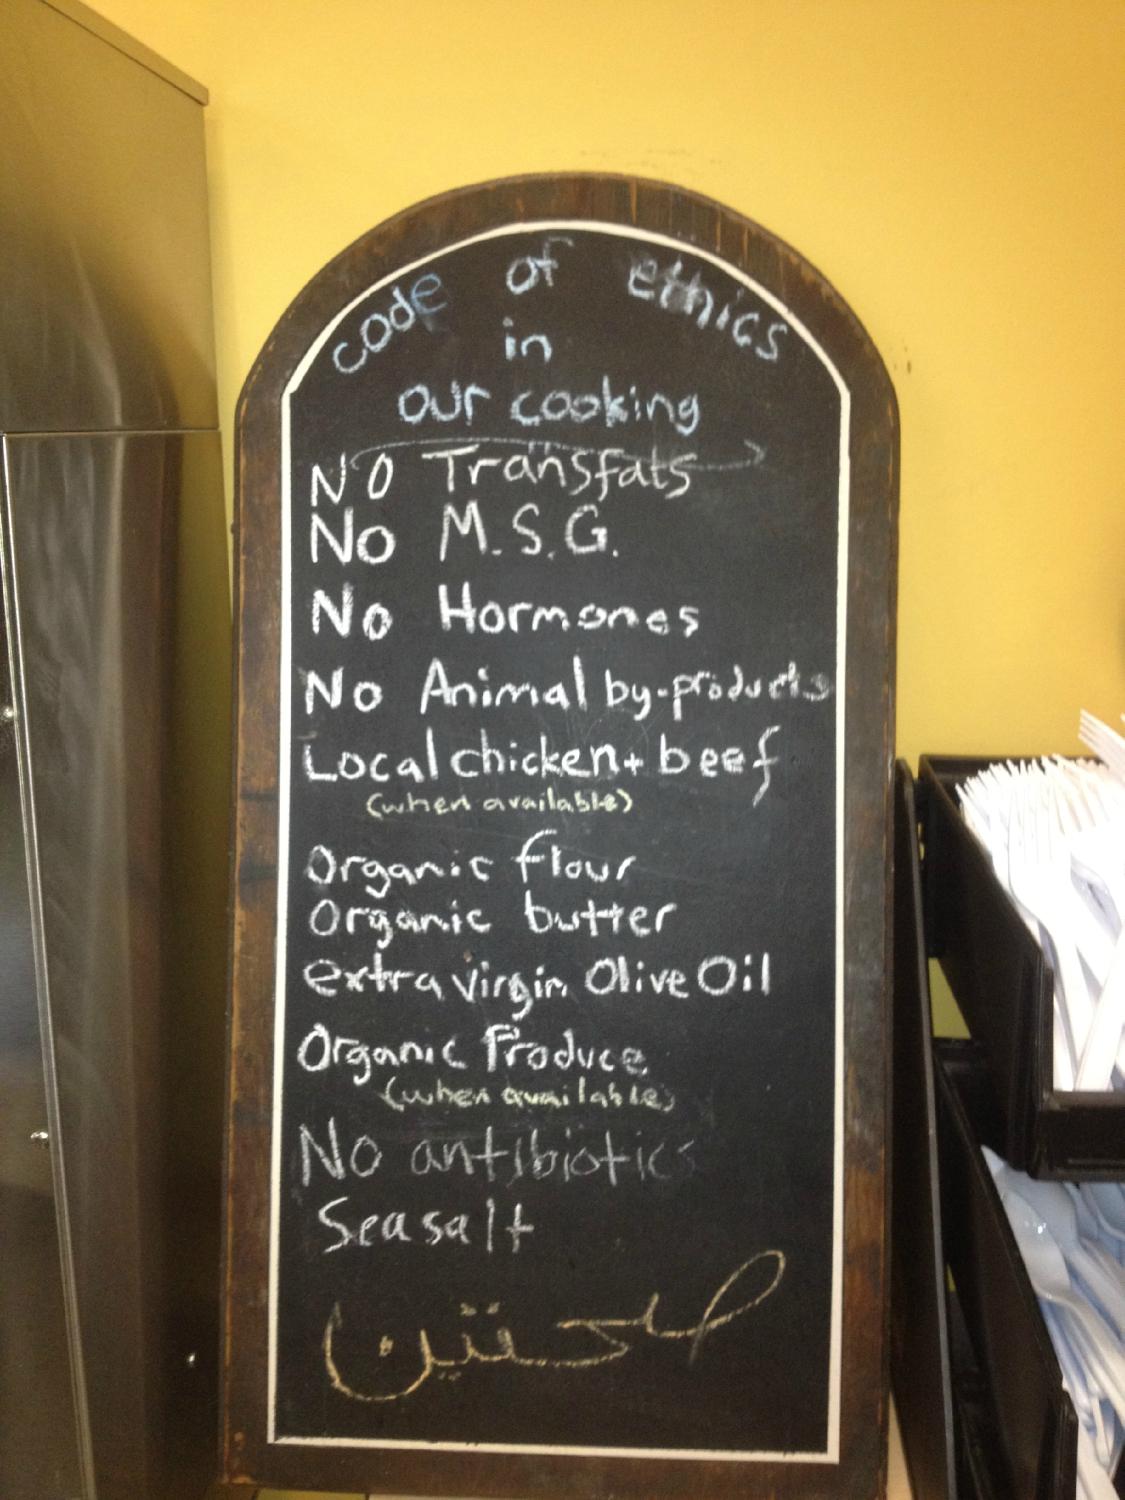 code of ethics
in
our cooking
NO Transfats
No M.S.G.
No Hormones
No Animal by-products
Local chicken + beef
(when available)
Organic flour
Organic butter
extra virgin Olive Oil
Organic Produce
(when available)
No antibiotics
Sea salt
صحتين